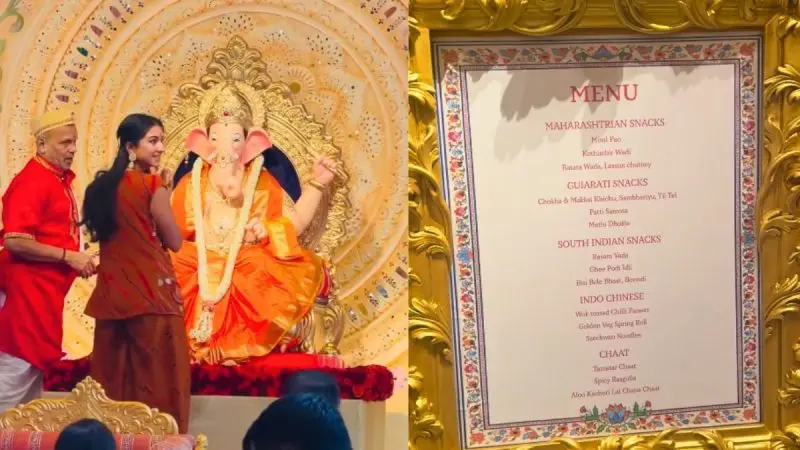 MENU
MAHARASHTRIAN SNACKS
Misal Pao
Kothimbir Wadi
Batata Wada, Lasun chutney
GUJARATI SNACKS
Chokha & Makkai Khichu, Sambhariyu, Til Tel
Patti Samosa
Methi Dhokla
SOUTH INDIAN SNACKS
Rasam Vada
Ghee Podi Idli
Bisi Bele Bhaat, Boondi
INDO CHINESE
Wok tossed Chilli Paneer
Golden Veg Spring Roll
Szechwan Noodles
CHAAT
Tamatar Chaat
Spicy Raagulla
Aloo Kachori Lal Chana Chaat